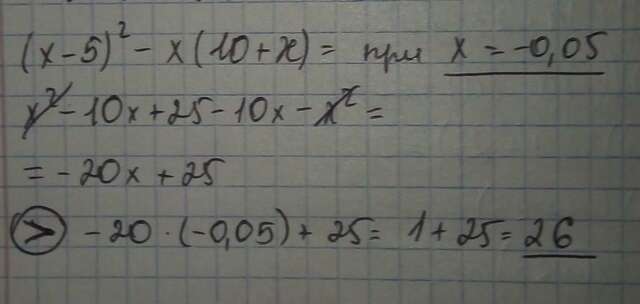 (x-5)² - x(10+x) = при x = -0,05
x² - 10x + 25 - 10x - x² =
= -20x + 25
> -20 · (-0,05) + 25 = 1 + 25 = 26